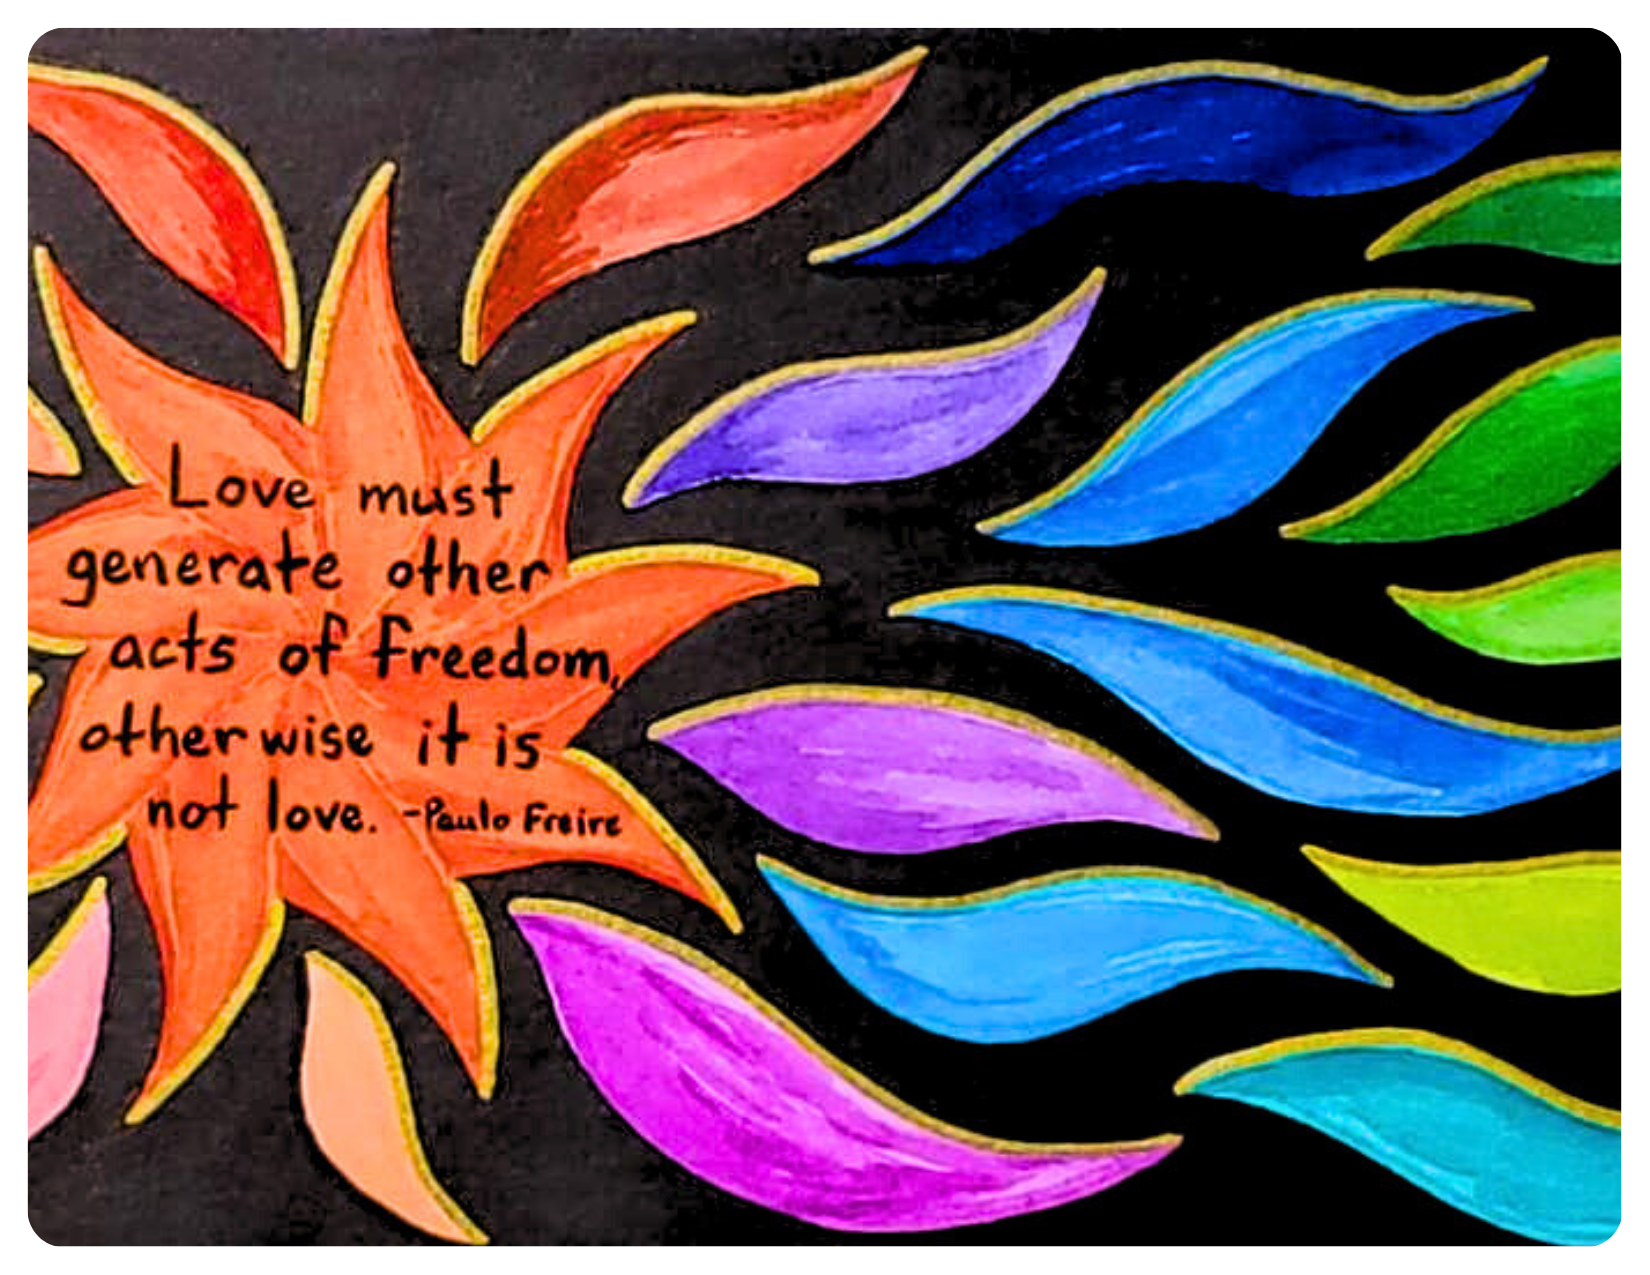 Love must
generate other
acts of freedom,
otherwise it is
not love. -Paulo Freire